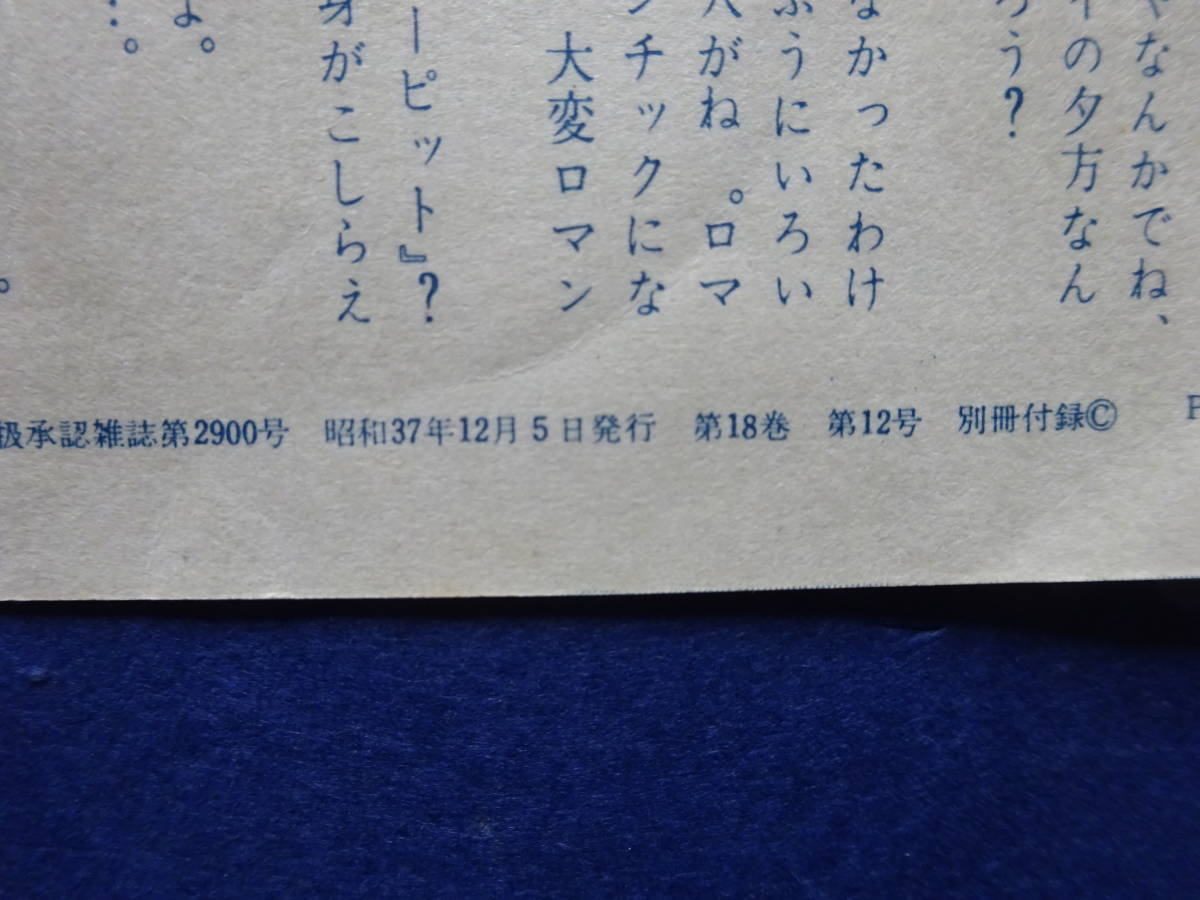 ゃなんかでね、
イの夕方なん
ろう？
なかったわけ
ふうにいろい
がね。ロマ
ンチックにな
大変ロマン
ーピット』？
身がこしらえ
よ。
…。
。
扱承認雑誌第2900号 昭和37年12月5日発行 第18巻 第12号 別冊付録Ⓒ